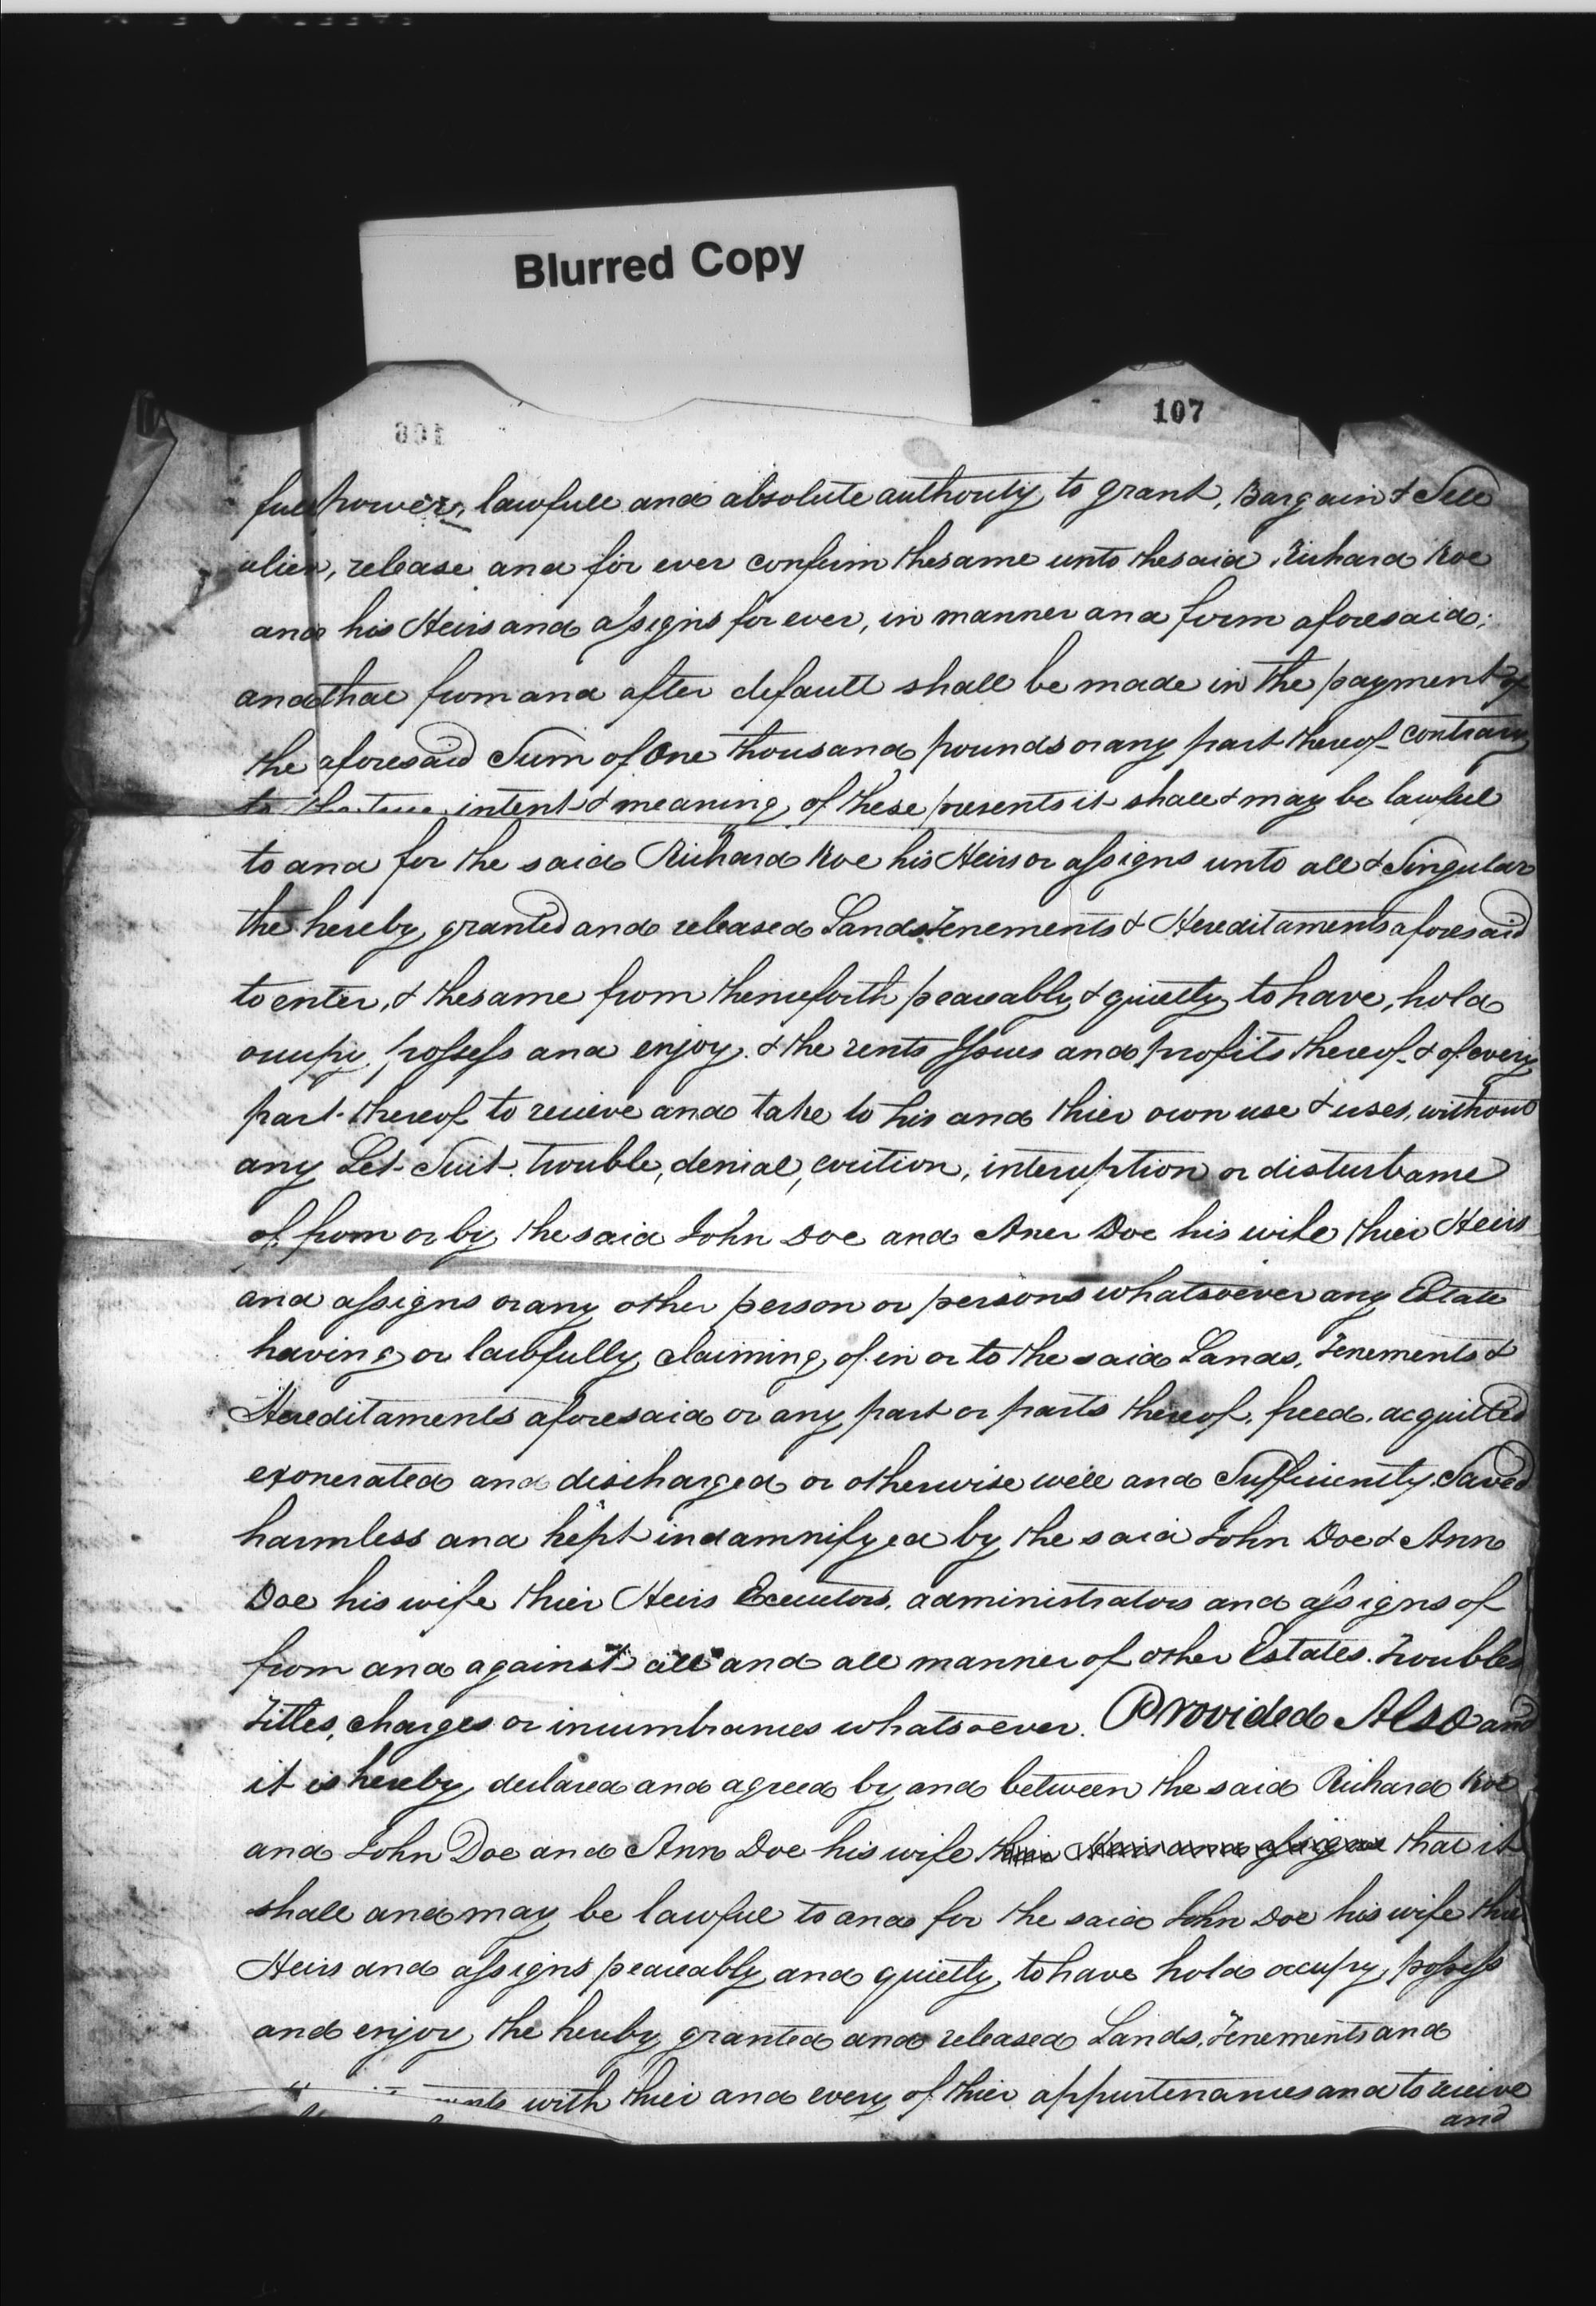 Blurred Copy
107
108
full power, lawfull and absolute authority to grant, Bargain & Sell
alien, release and for ever confirm the same unto the said Richard Roe
and his Heirs and assigns for ever, in manner and form aforesaid;
and that from and after default shall be made in the payment of
the aforesaid Sum of One thousand pounds or any part thereof contrary
to the true intent & meaning of these presents it shall & may be lawful
to and for the said Richard Roe his Heirs or assigns unto all & Singular
the hereby granted and released Lands Tenements & Hereditaments aforesaid
to enter, & the same from thenceforth peaceably & quietly to have, hold
occupy, possess and enjoy & the rents Issues and profits thereof & of every
part thereof to receive and take to his and thier own use & uses, without
any Let Suit trouble, denial, eviction, interuption or disturbance
of from or by the said John Doe and Ann Doe his wife thier Heirs
and assigns or any other person or persons whatsoever any Estate
having or lawfully claiming of in or to the said Lands, Tenements &
Hereditaments aforesaid or any part or parts thereof, freed, acquitted
exonerated and discharged or otherwise well and Sufficiently Saved
harmless and kept indamnifyed by the said John Doe & Ann
Doe his wife thier Heirs Executors, administrators and assigns of
from and against all and all manner of other Estates, Troubles
Titles, charges or incumbrances whatsoever. Provided Also and
it is hereby declared and agreed by and between the said Richard Roe
and John Doe and Ann Doe his wife thier Heirs and assigns that it
shall and may be lawful to and for the said John Doe his wife thier
Heirs and assigns peaceably and quietly to have hold occupy, possess
and enjoy the hereby granted and released Lands, Tenements and
with thier and every of thier appurtenances and to receive
and